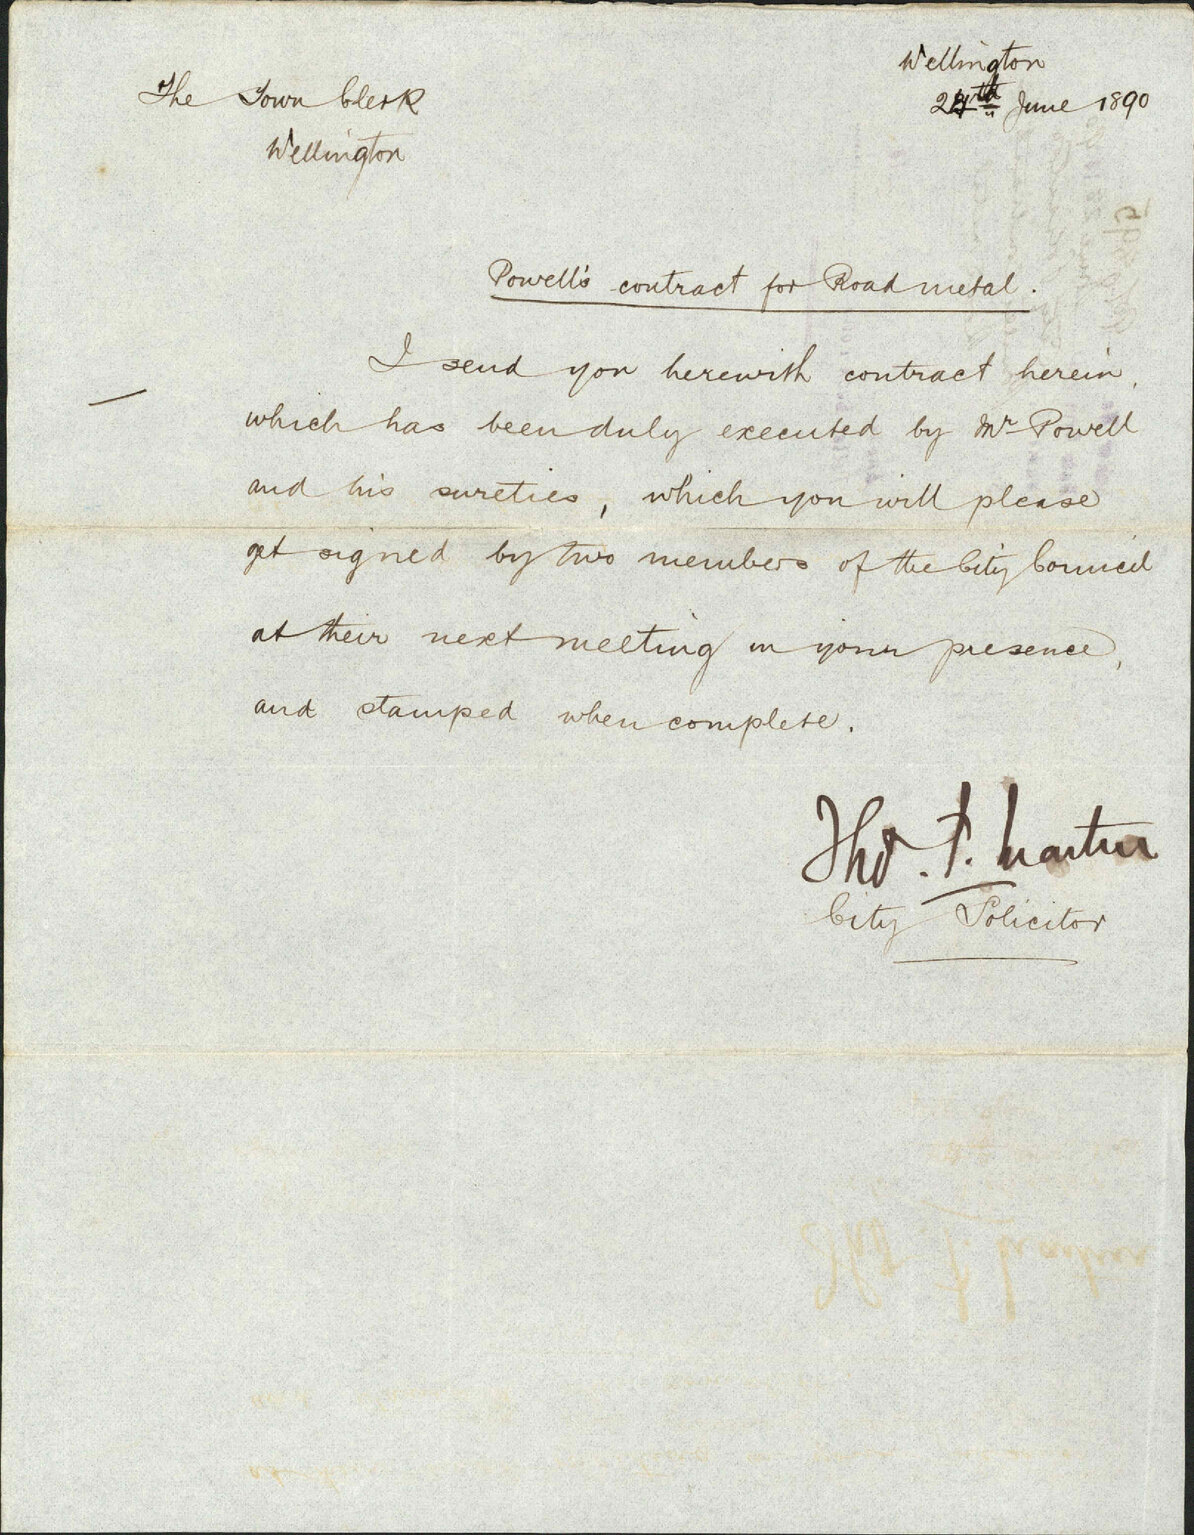 Wellington
June 1890
The Town Clerk
Wellington
Powell's contract for Road metal.
I send you herewith contract herein,
which has been duly executed by Mr Powell
and his sureties, which you will please
get signed by two members of the City Council
at their next meeting in your presence,
and stamped when complete.
Tho. F. Martin
City Solicitor